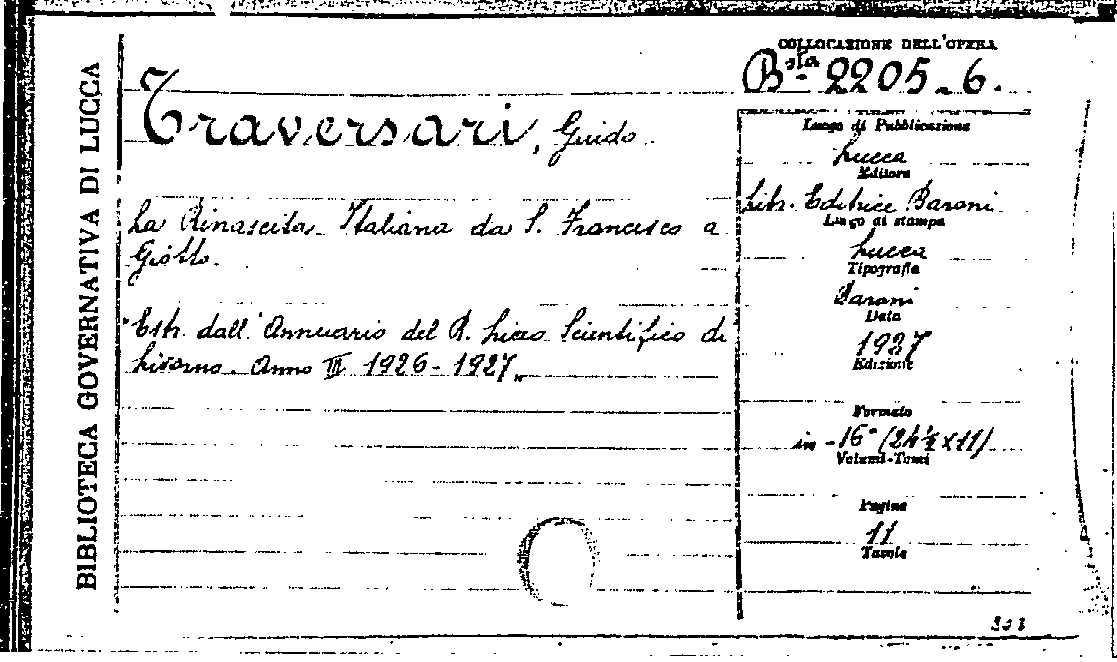 BIBLIOTECA GOVERNATIVA DI LUCCA
COLLOCAZIONE DELL'OPERA
Bsta 2205-6.
Traversari, Guido
La Rinascita Italiana da S. Francesco a
Giotto.
"Estr. dall'Annuario del R. Liceo Scientifico di
Livorno. Anno III 1926-1927"
Luogo di Pubblicazione
Lucca
Editore
Lib. Editrice Baroni
Luogo di stampa
Lucca
Tipografia
Baroni
Data
1927
Edizione
Formato
in-16° (24½ x 17)
Volumi-Tomi
Pagine
11
Tavole